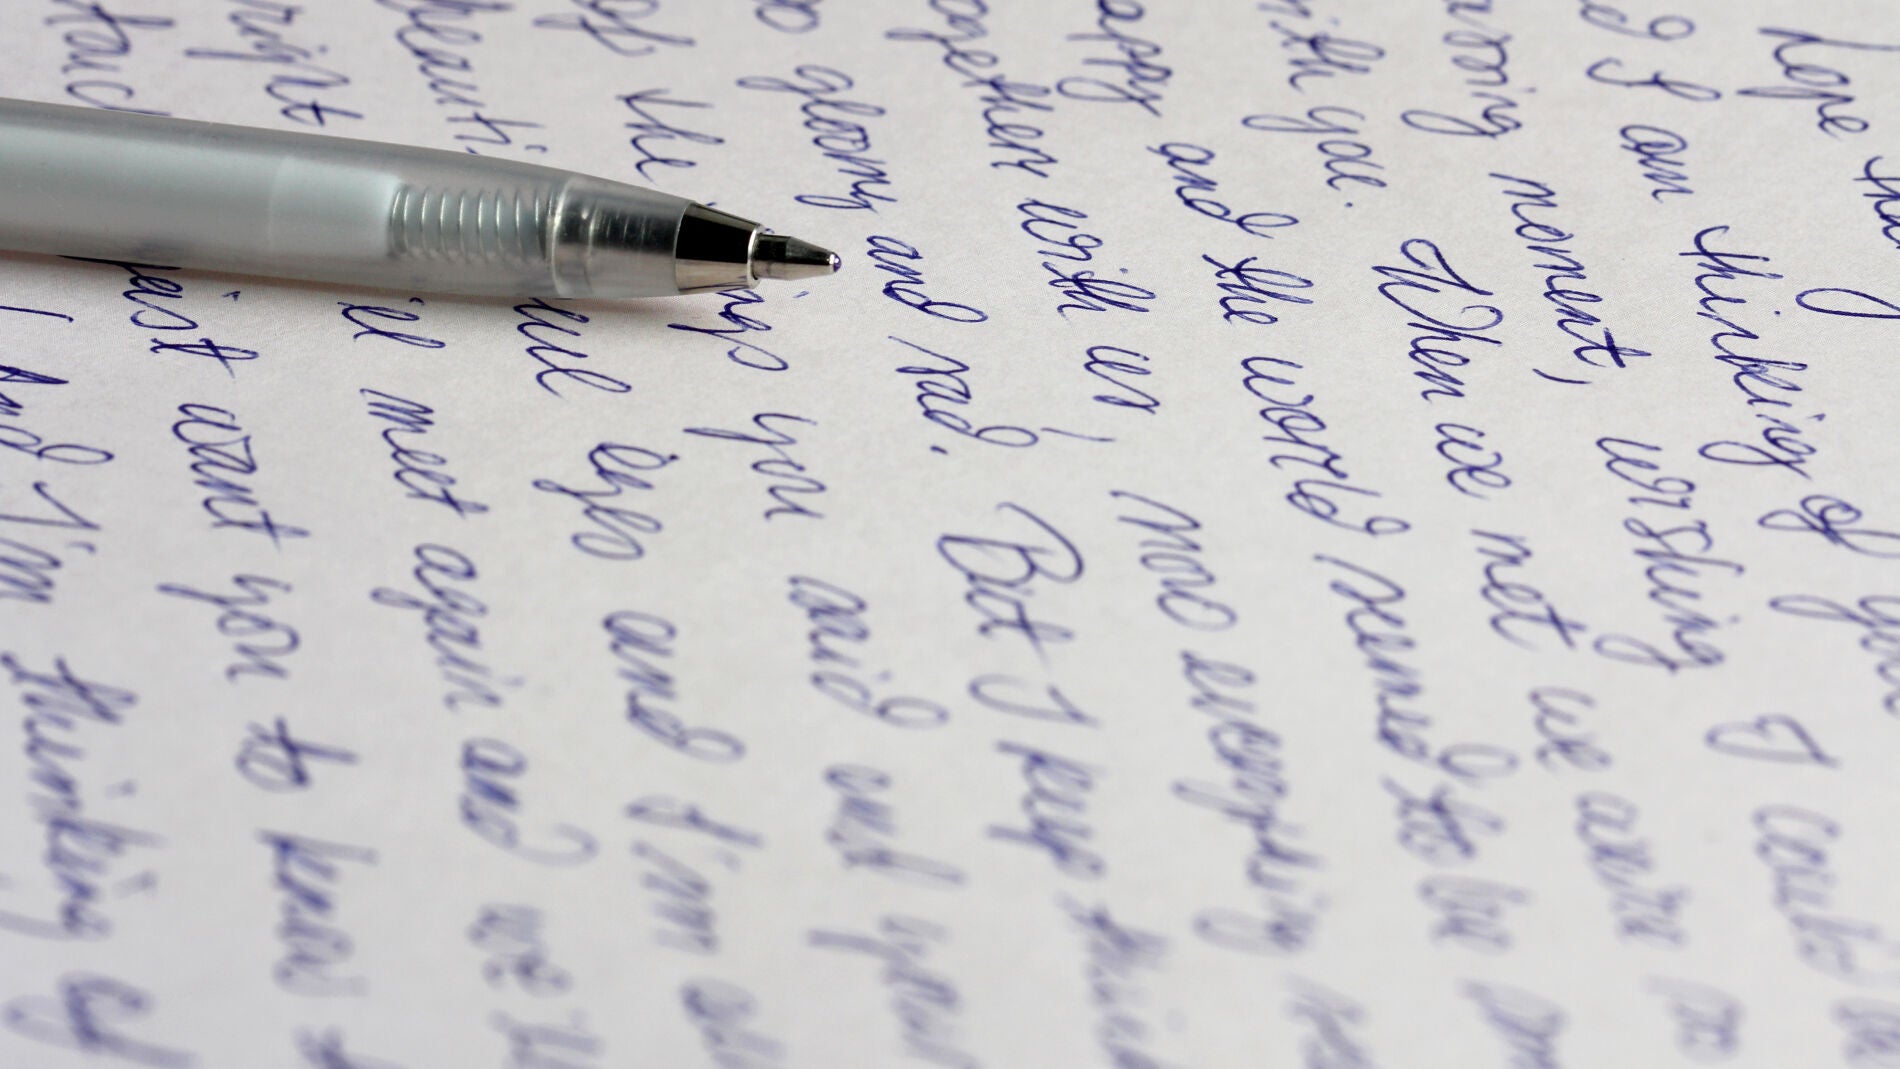 Hope
d I am thinking of you
moment, wishing I could be
with you. When we met we were
appy and the world seemed to be
ogether with us, now everything
so gloomy and sad. But I keep
of the ings you said and
beauti ful eyes and I'm
right meet again and we
want you to know
And I'm thinking of